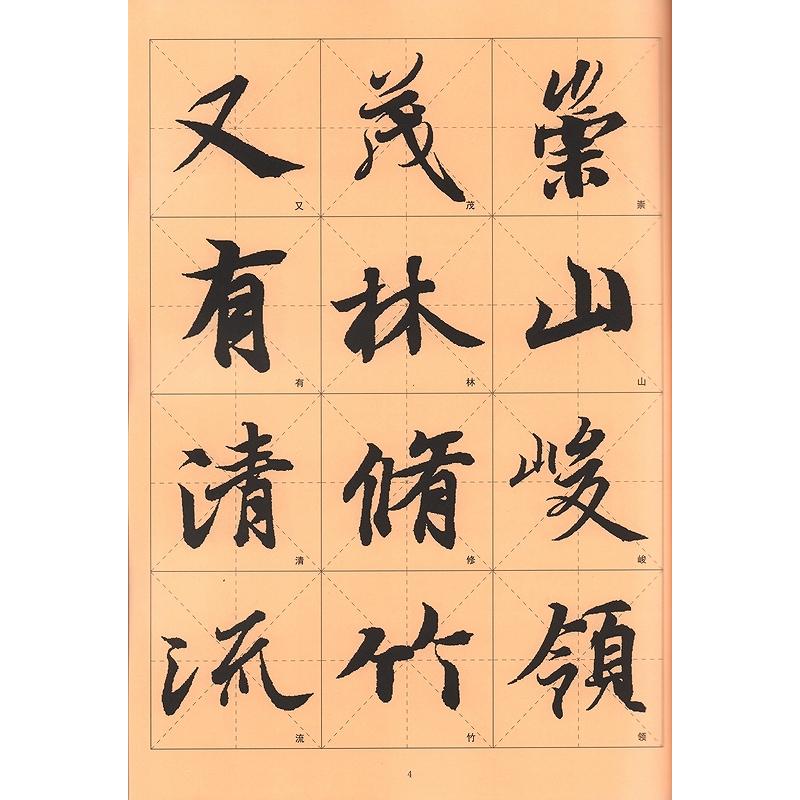 崇山峻領
茂林脩竹
又有清流
崇山峻领
茂林修竹
又有清流
4